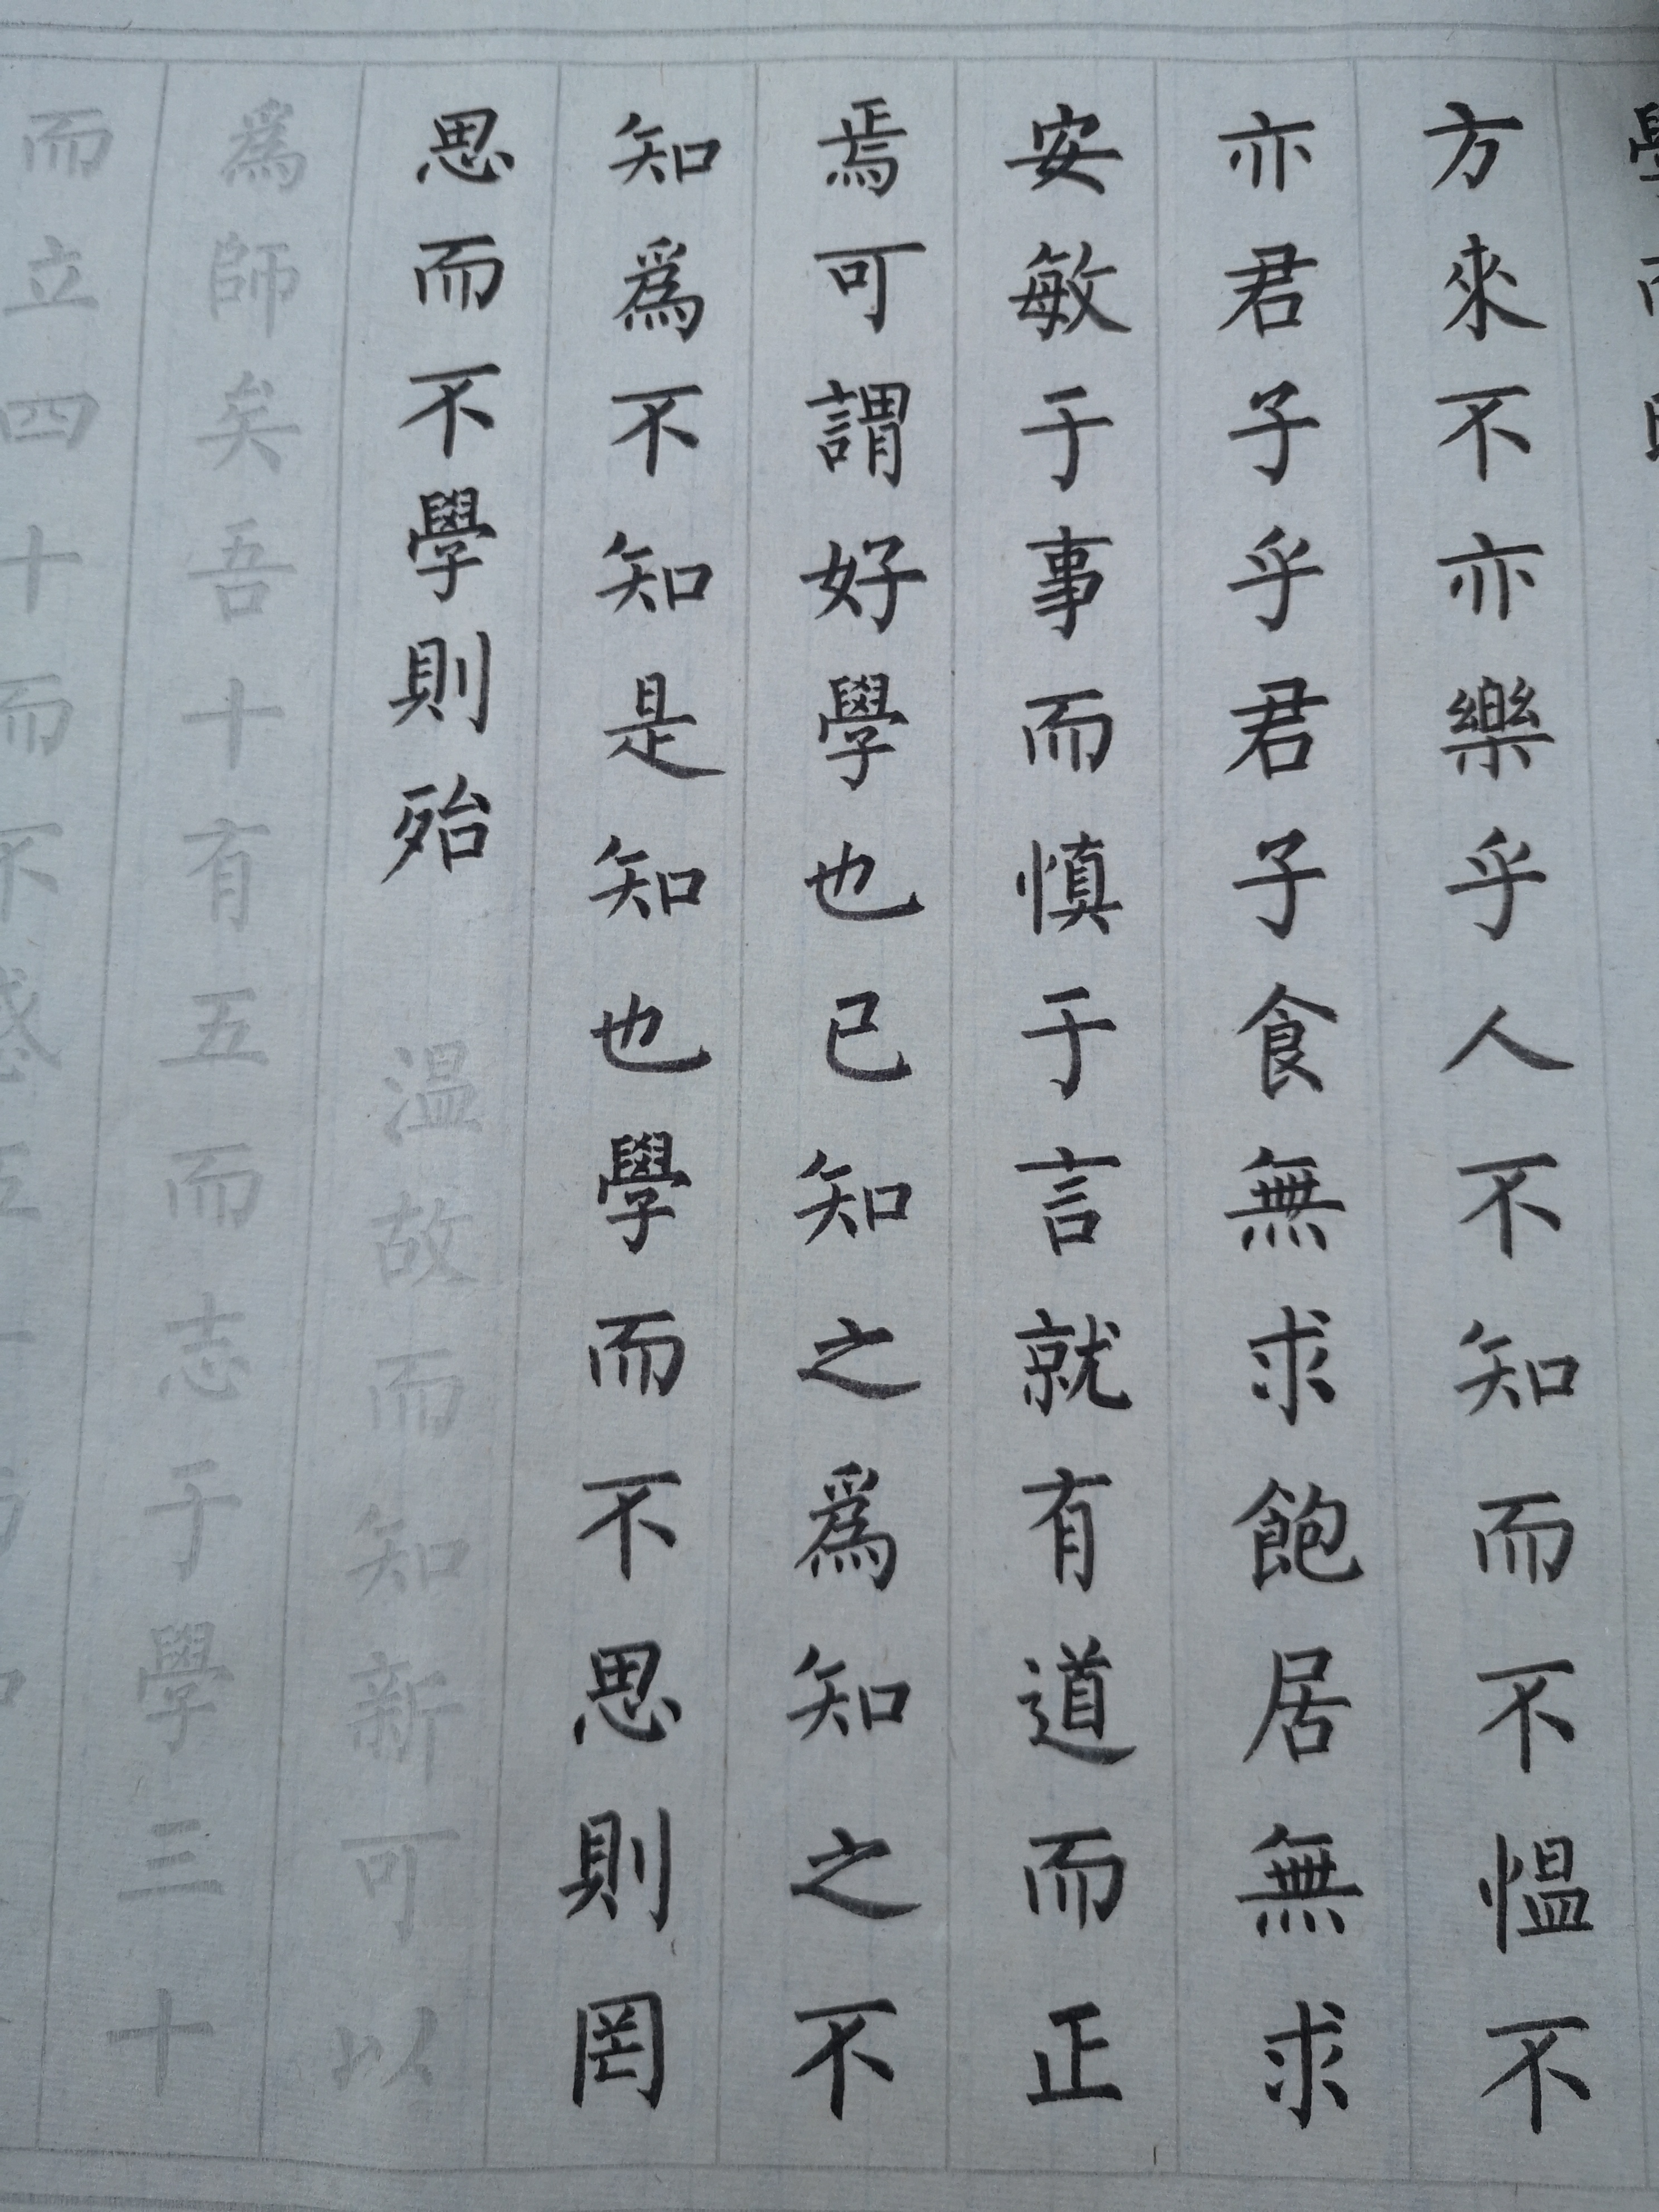 方來不亦樂乎人不知而不愠不
亦君子乎君子食無求飽居無求
安敏于事而慎于言就有道而正
焉可謂好學也已知之爲知之不
知爲不知是知也學而不思則罔
思而不學則殆温故而知新可以
爲師矣吾十有五而志于學三十
而立四十而不惑五